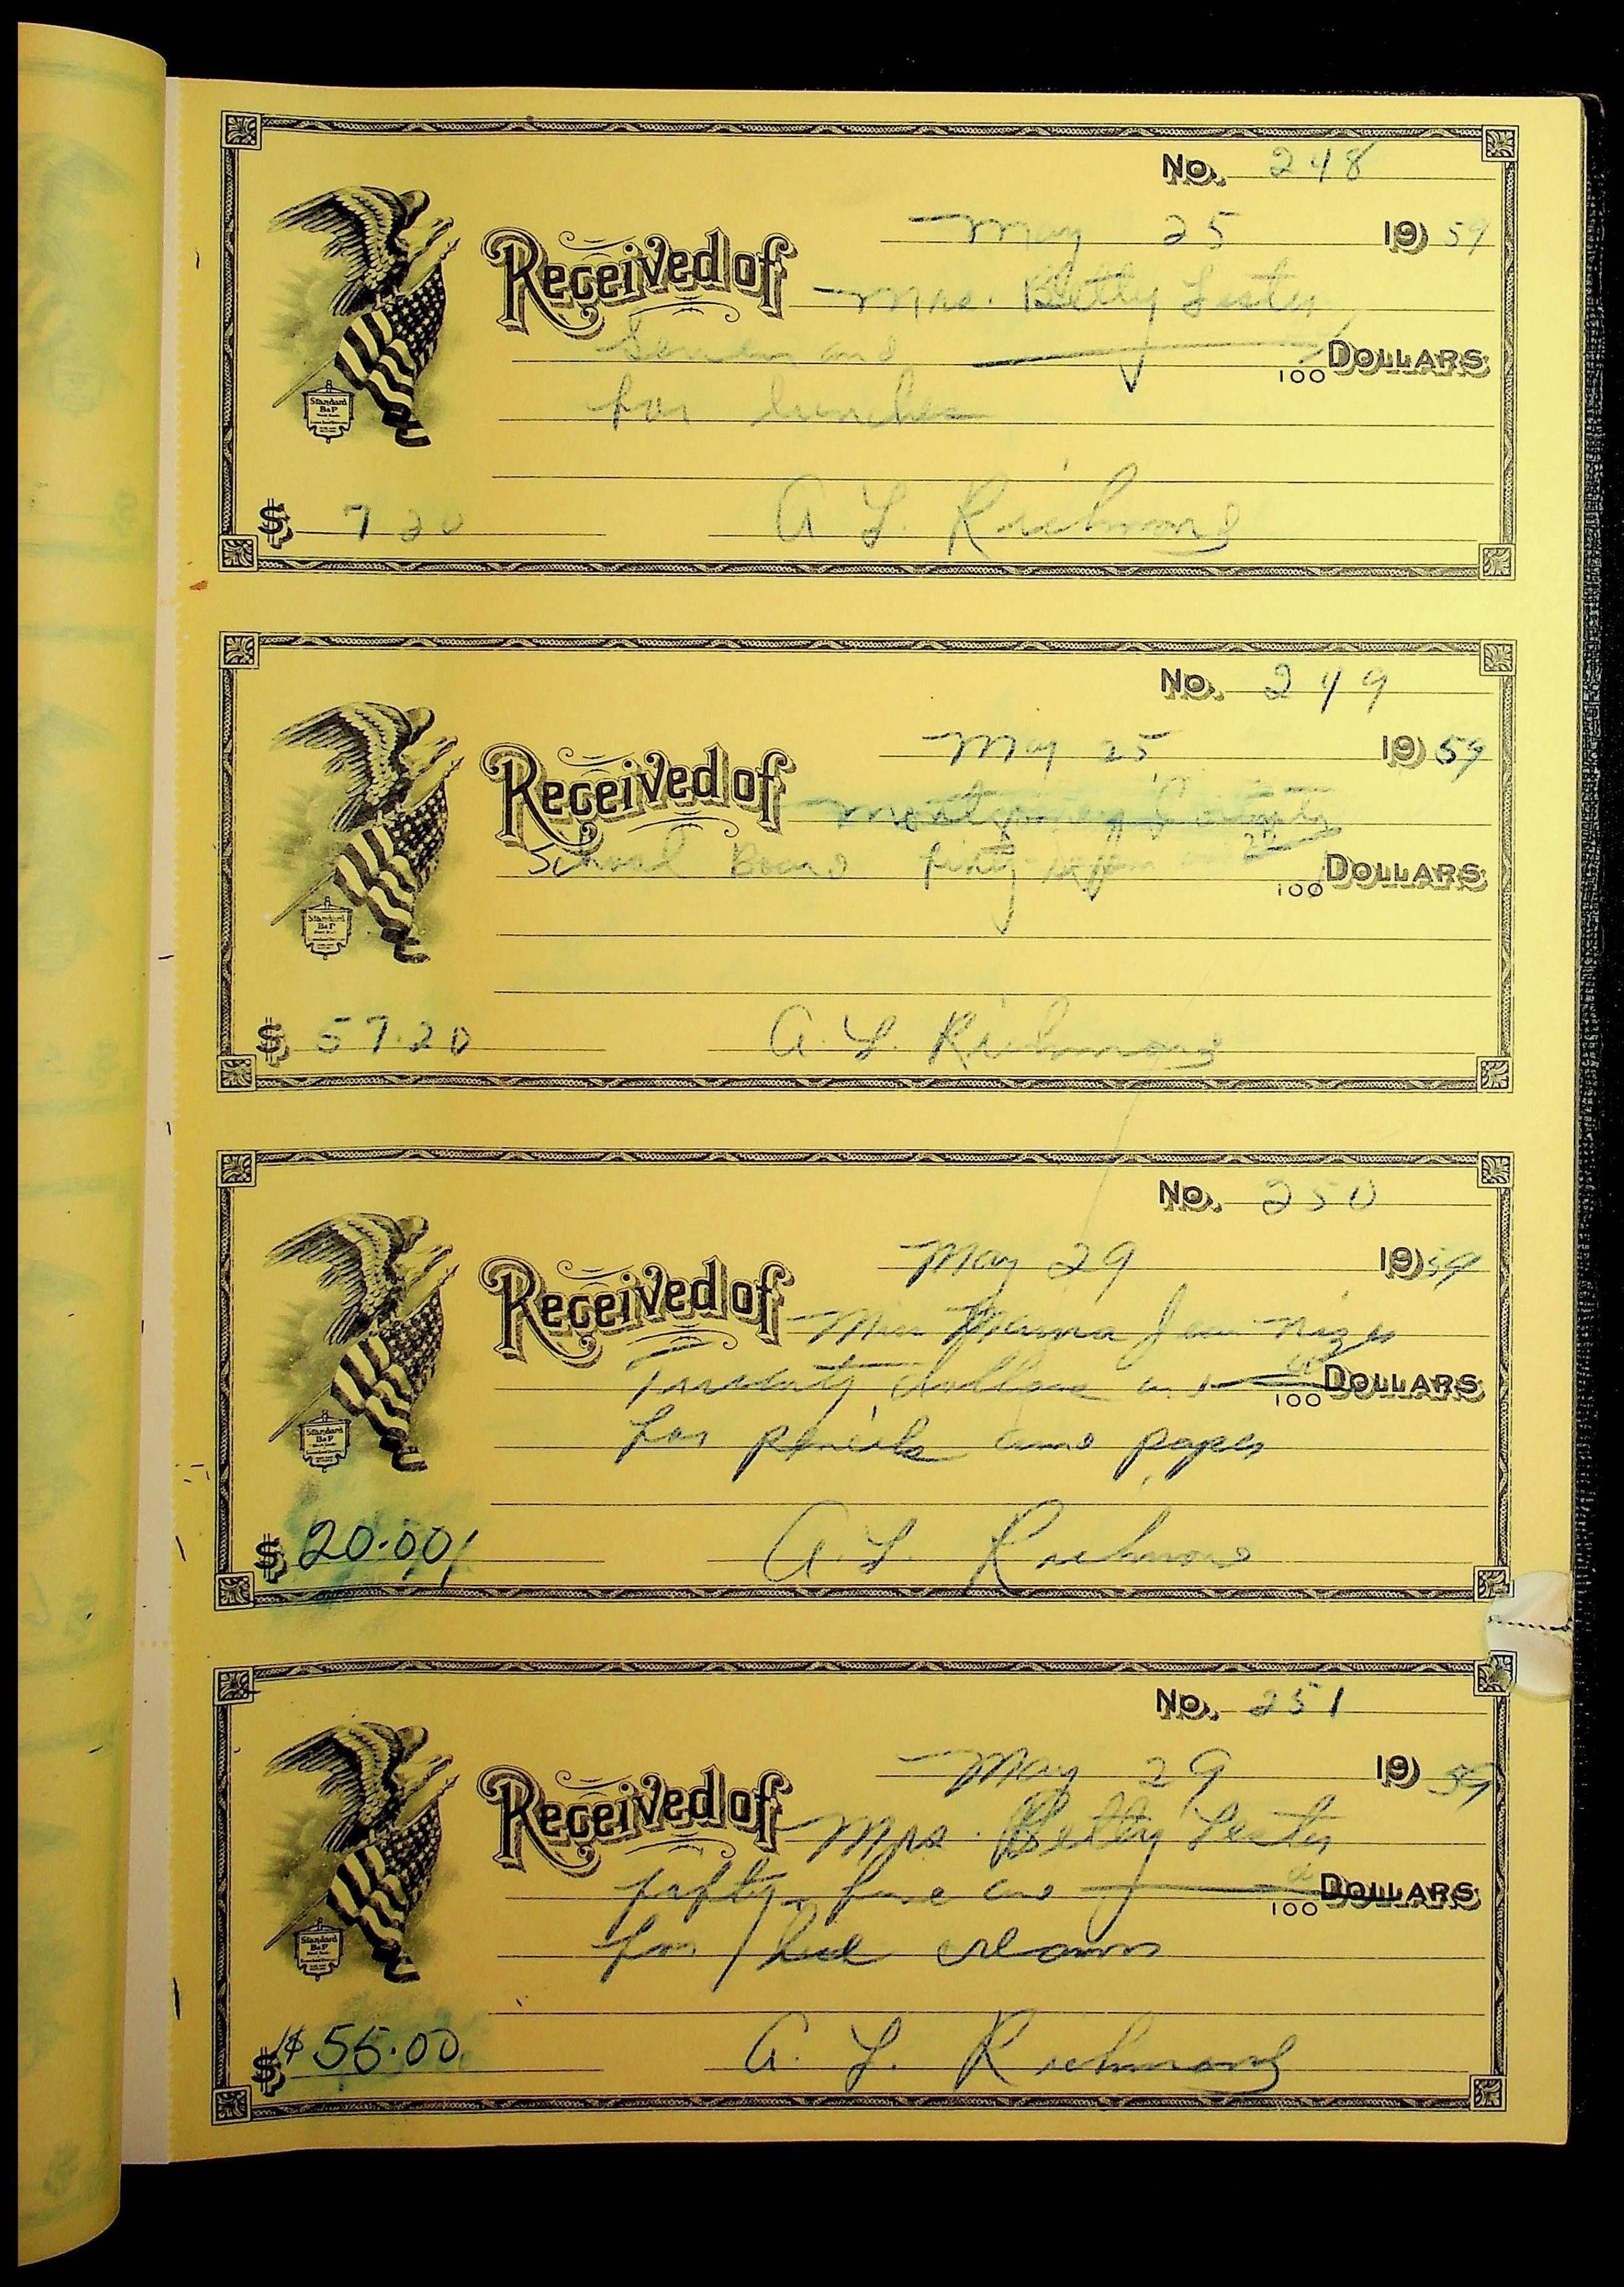 No. 248
May 25 1959
Received of Mrs. Betty Lester
Seven and 100 DOLLARS
for lunches
Standard
B&P
$ 7 20 A L. Richmond
No. 249
May 25 1959
Received of Montgomery County
School Board fifty-seven and 20 100 DOLLARS
Standard
B&P
$ 57.20 A. L. Richmond
No. 250
May 29 1959
Received of Miss Jean
Twenty dollars and 00 100 DOLLARS
for pencils and paper
Standard
B&P
$ 20.00 A. L. Richmond
No. 251
May 29 1959
Received of Mrs. Betty Lester
fifty-five and 100 DOLLARS
for cream
Standard
B&P
$ $55.00 A. L. Richmond